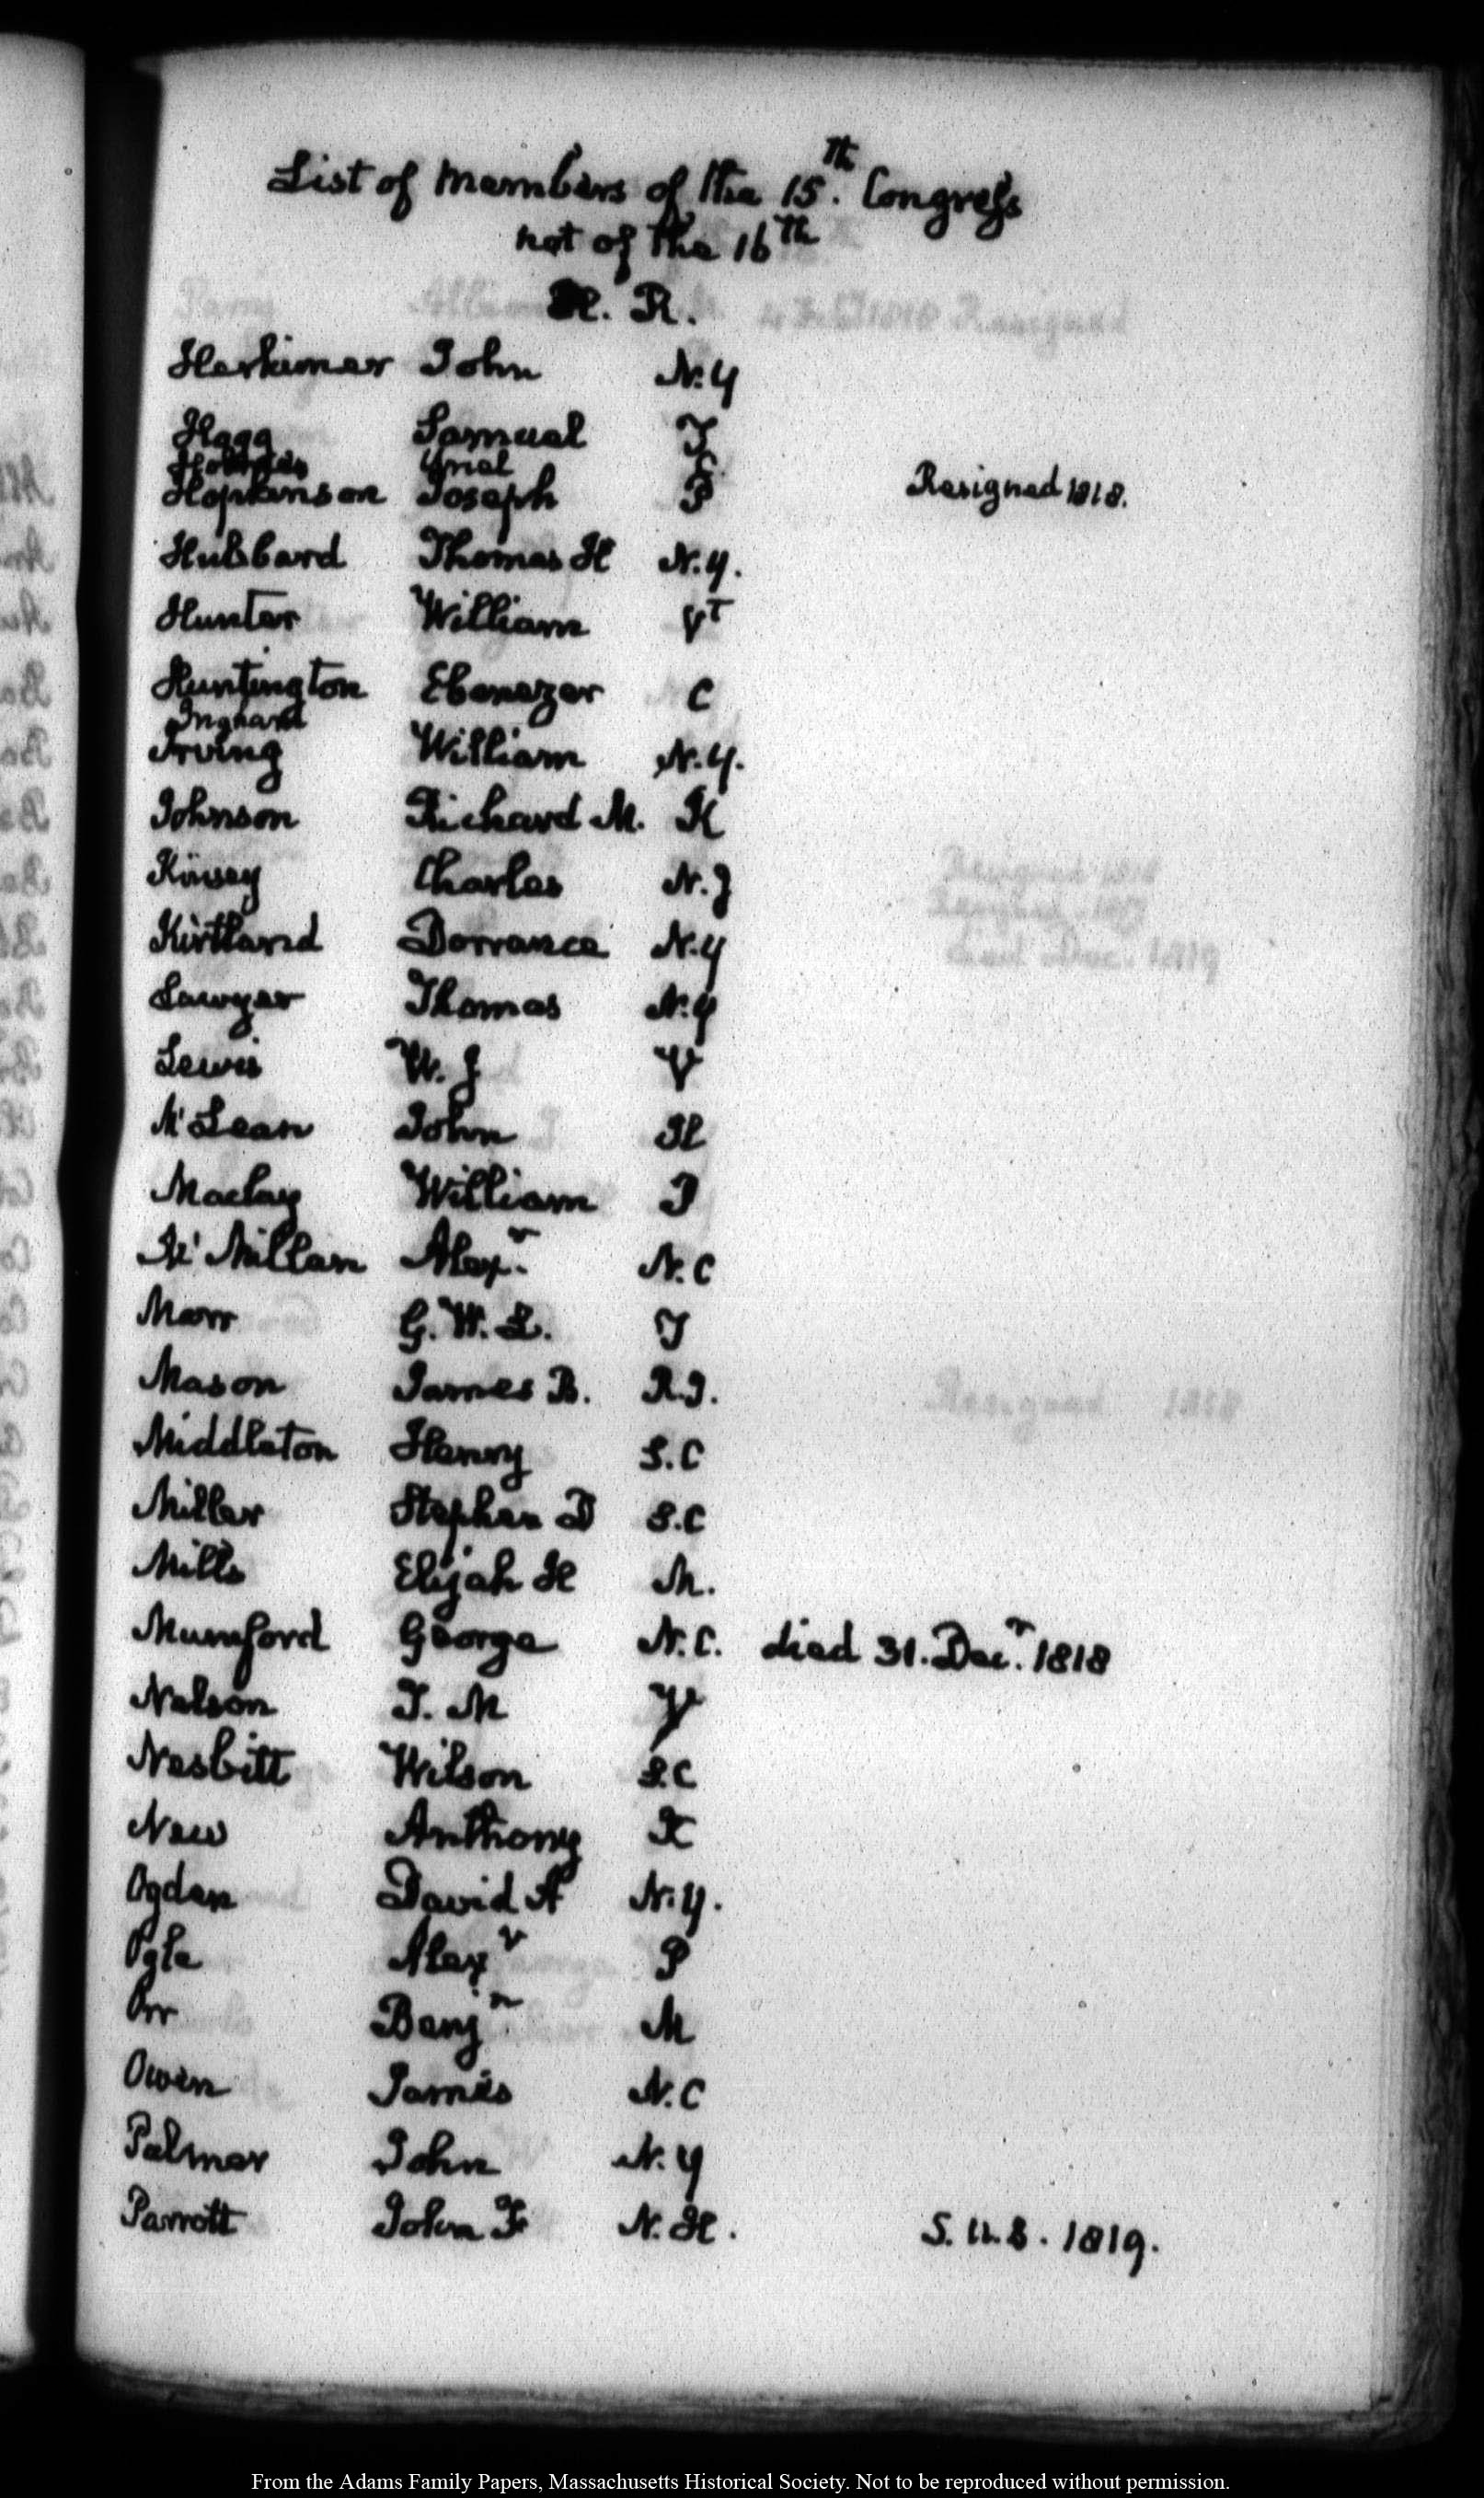 List of members of the 15th. Congress
not of the 16th
H. R.
Herkimer John N.Y
Hogg Samuel T
Holmes Uriel C.
Hopkinson Joseph P Resigned 1818.
Hubbard Thomas H N.Y.
Hunter William VT
Huntington Ebenezer C
Ingham
Irving William N.Y.
Johnson Richard M. K
Kinsey Charles N.J
Kirtland Dorrance N.Y
Lawyer Thomas N.Y
Lewis W. J V
McLean John Il
Maclay William P
McMillan Alexr. N.C
Marr G. W. L. T
Mason James B. R.I.
Middleton Henry S.C
Miller Stephen D S.C
Mills Elijah H M.
Mumford George N.C. died 31. Decr. 1818
Nelson T. M V
Nesbitt Wilson S.C
New Anthony K
Ogden David A N.Y.
Ogle Alexr P
Orr Benjn M
Owen James N.C
Palmer John N.Y
Parrott John F N.H. S.U.S. 1819.
From the Adams Family Papers, Massachusetts Historical Society. Not to be reproduced without permission.